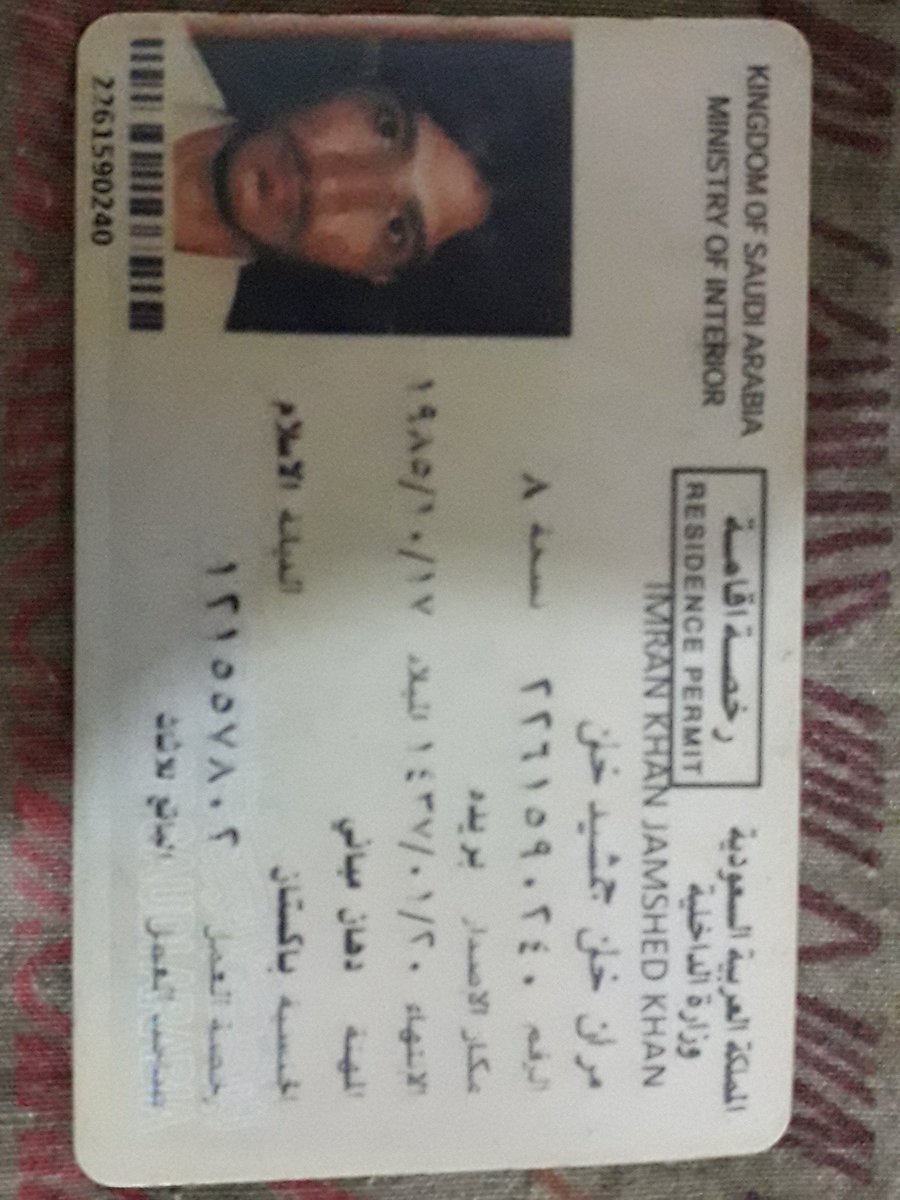 KINGDOM OF SAUDI ARABIA
MINISTRY OF INTERIOR
رخصة اقامة
RESIDENCE PERMIT
المملكة العربية السعودية
وزارة الداخلية
IMRAN KHAN JAMSHED KHAN
خان جمشيد خان
الرقم ٢٢٦١٥٩٠٢٤٠ نسخة ٨
مكان الاصدار بريده
الانتهاء ١٤٣٧/٠١/٢٠ الميلاد ١٩٨٥/١٠/١٧
المهنة دهان مباني
الجنسية باكستان الديانة الاسلام
رخصة العمل ١٢١٥٥٧٨٠٢
صاحب العمل للاثاث
2261590240